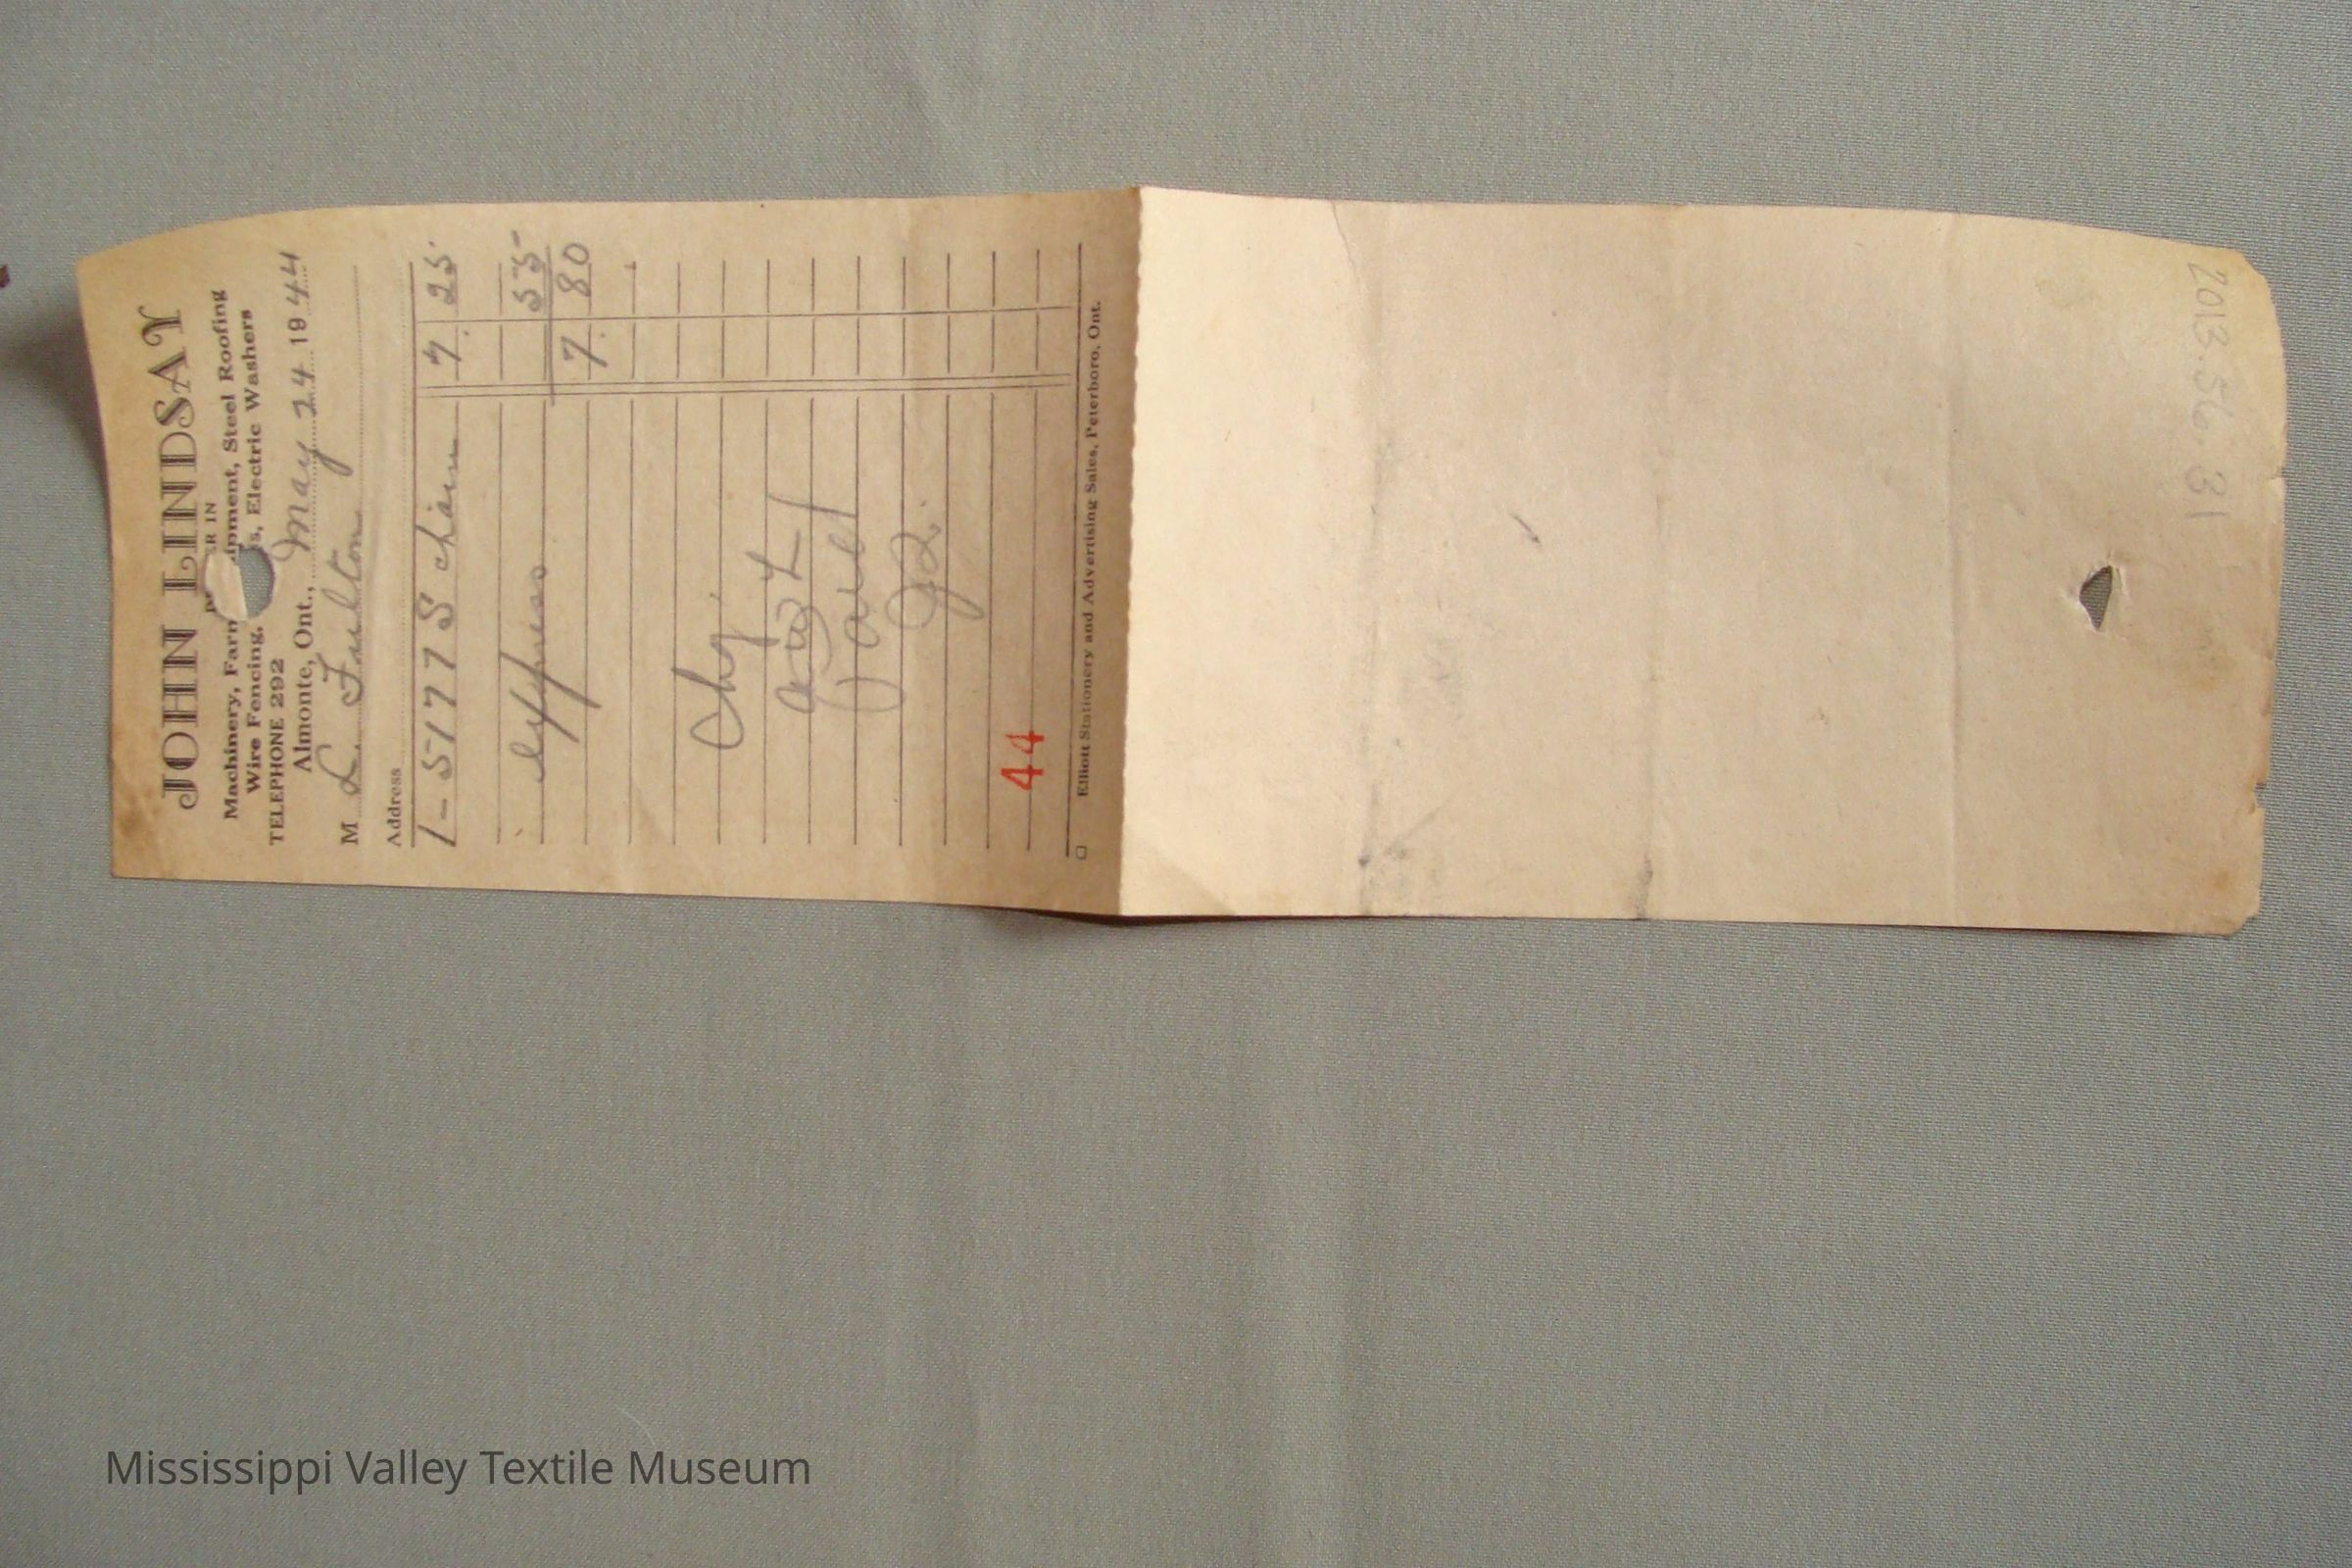 JOHN LINDSAY
ER IN
Machinery, Farm ipment, Steel Roofing
Wire Fencing, s, Electric Washers
TELEPHONE 292
Almonte, Ont., May 24 1944
M L. Fulton
Address
1 - 51778 chain 7. 25
express 55
7. 80
Chg.
Paid
44
Elliott Stationery and Advertising Sales, Peterboro, Ont.
2013.56.31
Mississippi Valley Textile Museum